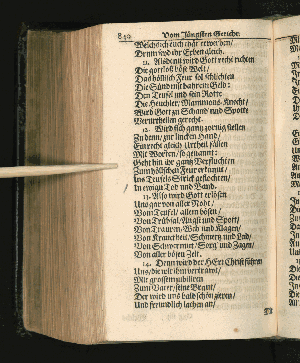 850 Vom Jüngsten Gerichte.
Welches ich euch
Denn seyd ihr Erben gleich.
11. Alsdenn wird Gott recht richten
Die gottloß böse Welt/
Das höllisch Feur sol schlichten
Die Sünd mit bahrem Geld:
Den Teufel und sein Rotte
Die Heuchler/ Mammons-Knecht/
Wird Gott zu Schand und Spotte
Verurtheilen gerecht.
12. Wird sich gantz zornig stellen
Zu denn/ zur lincken Hand/
Ein recht gleich Urtheil fällen
Mit Worten/ so genannt:
Geht hin ihr gantz Verfluchten
Zum höllschen Feur
Ins Teufels Strick geflochten/
In ewign Tod und Band.
13. Also wird Gott erlösen
Uns gar von aller Noht/
Vom Teufel/ allem bösen/
Von Trübsal/ Angst und Spott/
Von Trauren/ Weh und Klagen/
Von Kranckheit/ Schmertz und Tod/
Von Schwermut/ Sorg und Zagen/
Von aller bösen Zeit.
14. Denn wird der HErr Christ führen
Uns/ die wir ihm vertraut/
Mit grossem
Zum Vater/ seine Braut/
Der wird uns bald schön zieren/
Und freundlich lachen an/
Mit